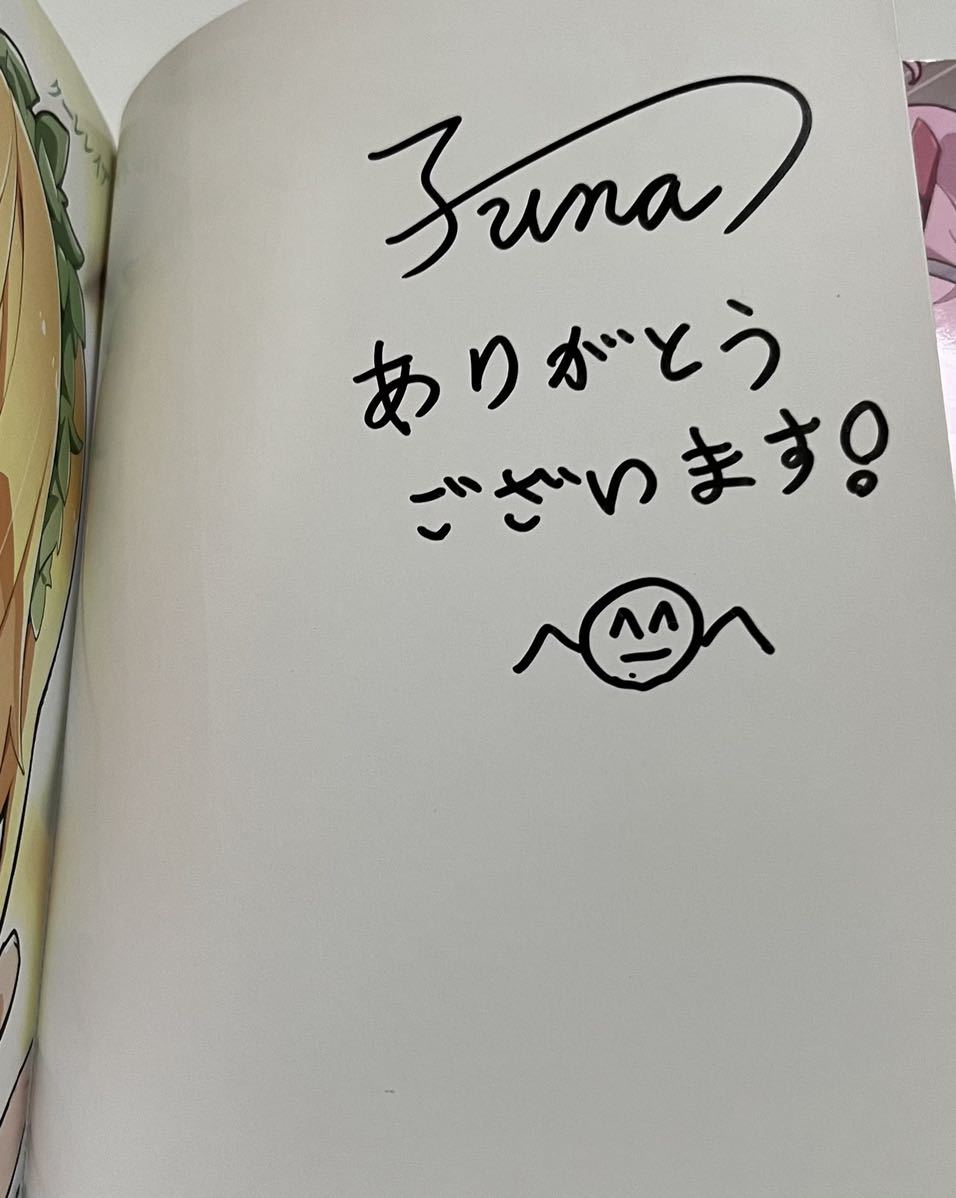 Funa
ありがとう
ございます!